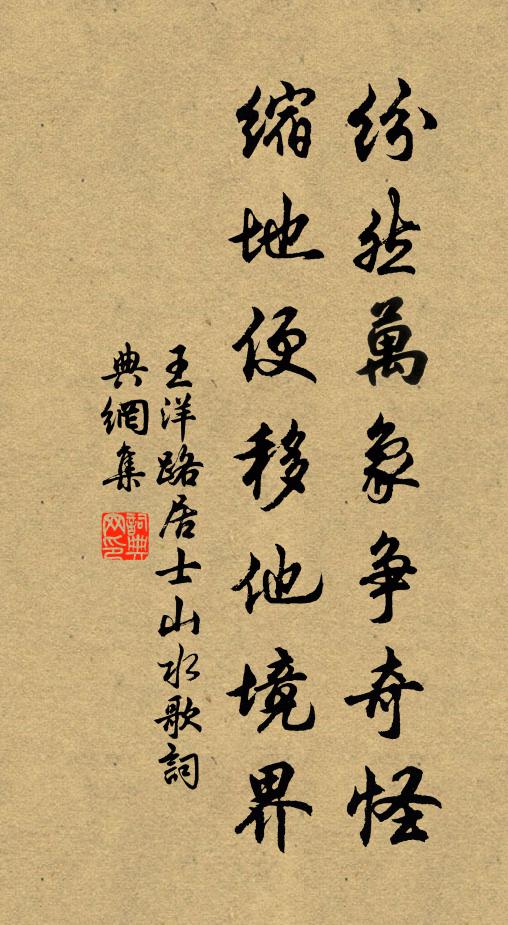 纷然萬象争奇怪
縮地便移他境界
王洋路居士山水歌詞
典網集
詞典网印